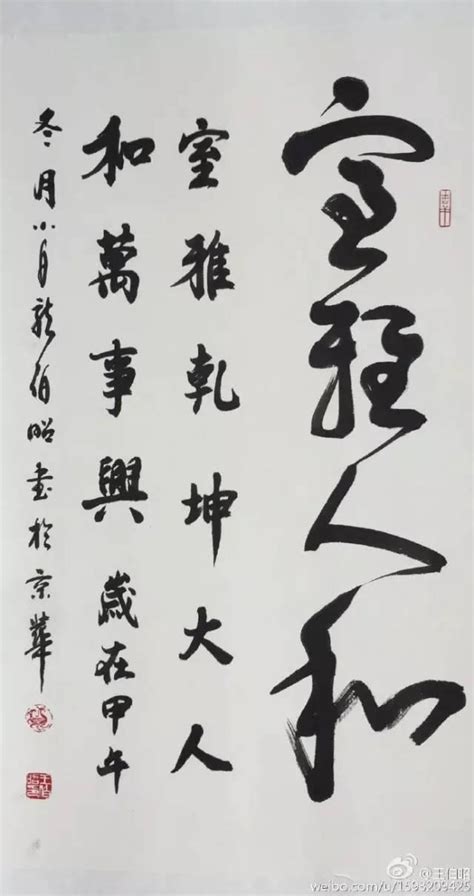 室雅人和
室雅乾坤大人
和萬事興 歲在甲午
冬月小白龍伯昭書於京華
@王伯昭